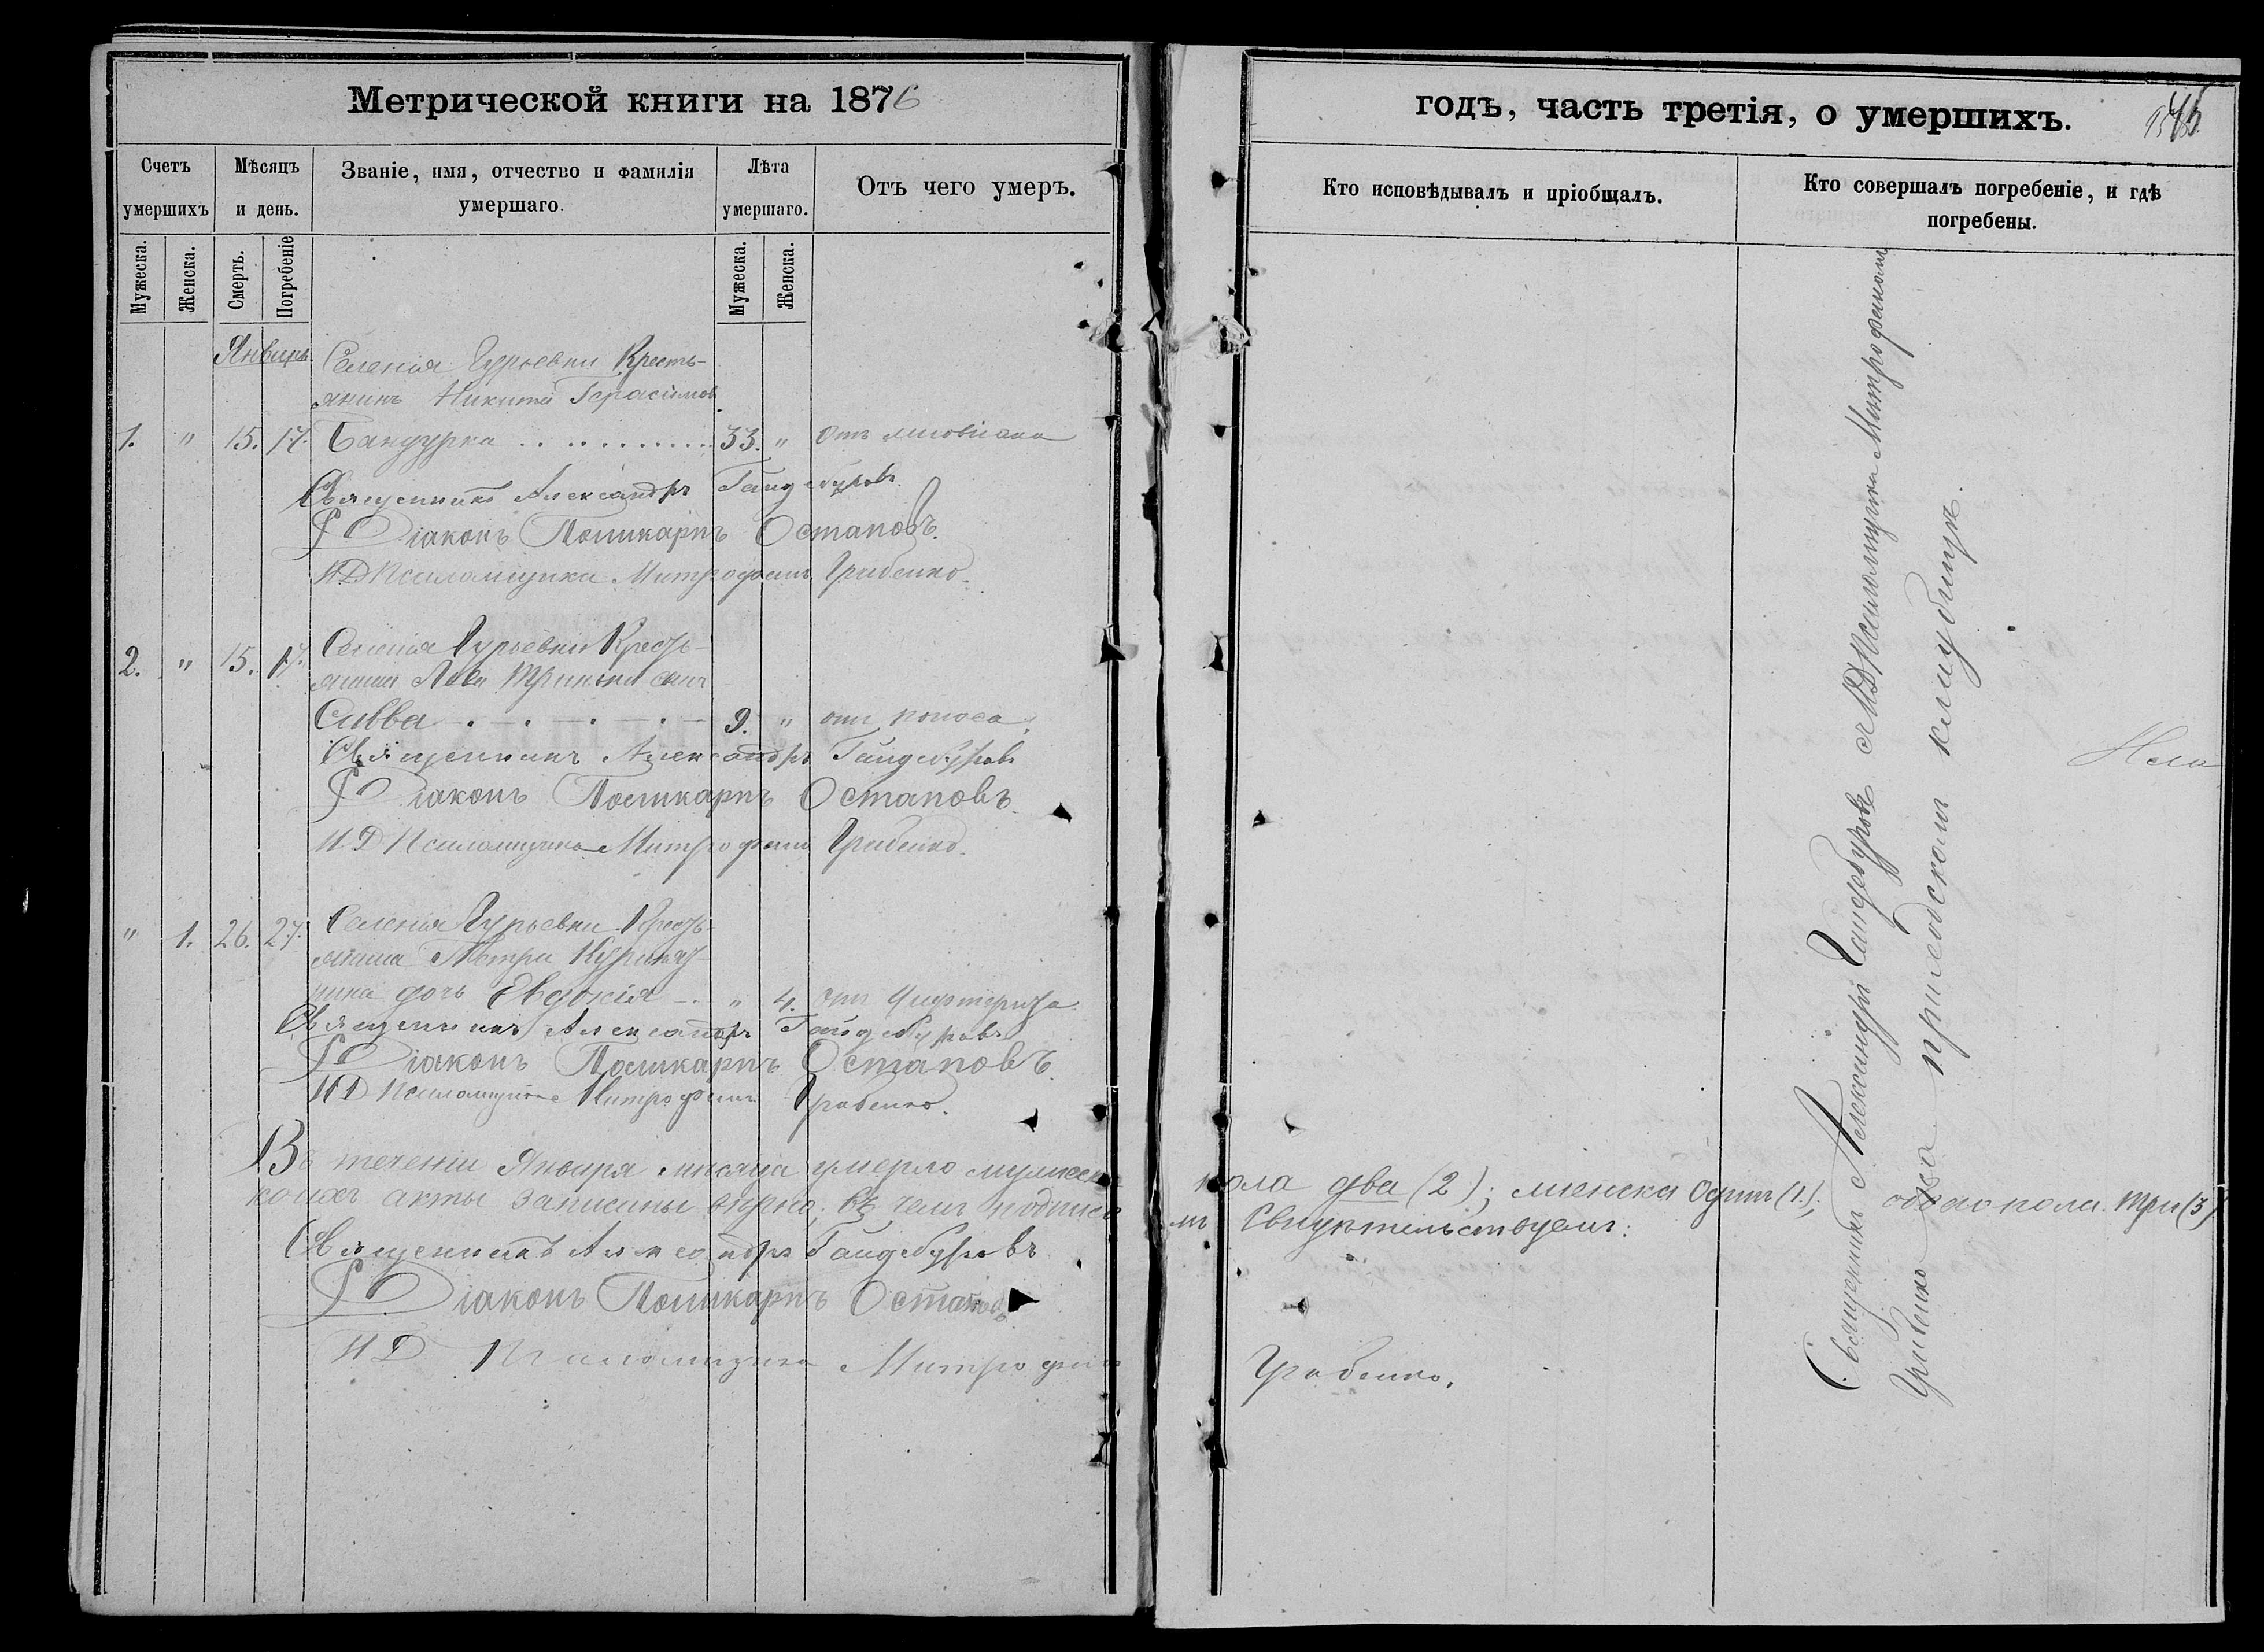 Метрической книги на 1876
годъ, часть третія, о умершихъ.
Счетъ умершихъ
Мѣсяцъ и день.
Званіе, имя, отчество и фамилія умершаго.
Лѣта умершаго.
Отъ чего умеръ.
Кто исповѣдывалъ и пріобщалъ.
Кто совершалъ погребеніе, и гдѣ погребены.
Мужеска.
Женска.
Смерть.
Погребеніе
Мужеска.
Женска.
Январь
Селенія Гурьевки Кресть-
янинъ Никита Герасимов
1. " 15. 17. Бандурка 33. " Отъ
Священникъ Александръ Гайдебуровъ
Діаконъ Поликарпъ Остаповъ.
И Д Псаломщика Митрофанъ Грибенко.
2. " 15. 17. Селенія Гурьевки Кресть-
сынъ
Савва 9. " отъ поноса
Священникъ Александръ Гайдебуровъ
Діаконъ Поликарпъ Остаповъ.
И Д Псаломщика Митрофанъ Грибенко.
" 1. 26. 27. Селенія Гурьевки Кресть-
янина Петра
дочь Евдокія " 4. отъ дифтерита
Священникъ Александръ Гайдебуровъ
Діаконъ Поликарпъ Остаповъ.
И Д Псаломщика Митрофанъ Грибенко.
Въ теченіи Января мѣсяца умерло мужеск пола два (2); женска одинъ (1.); обоего пола три (3)
коихъ акты записаны вѣрно; въ чемъ подписомъ Свидѣтельствуемъ:
Священникъ Александръ Гайдебуровъ
Діаконъ Поликарпъ Остаповъ
И Д Псаломщика Митрофанъ Грибенко.
Священникъ Александръ Гайдебуровъ съ И Д Псаломщика Митрофаномъ
Грибенко на приходскомъ кладбищѣ.